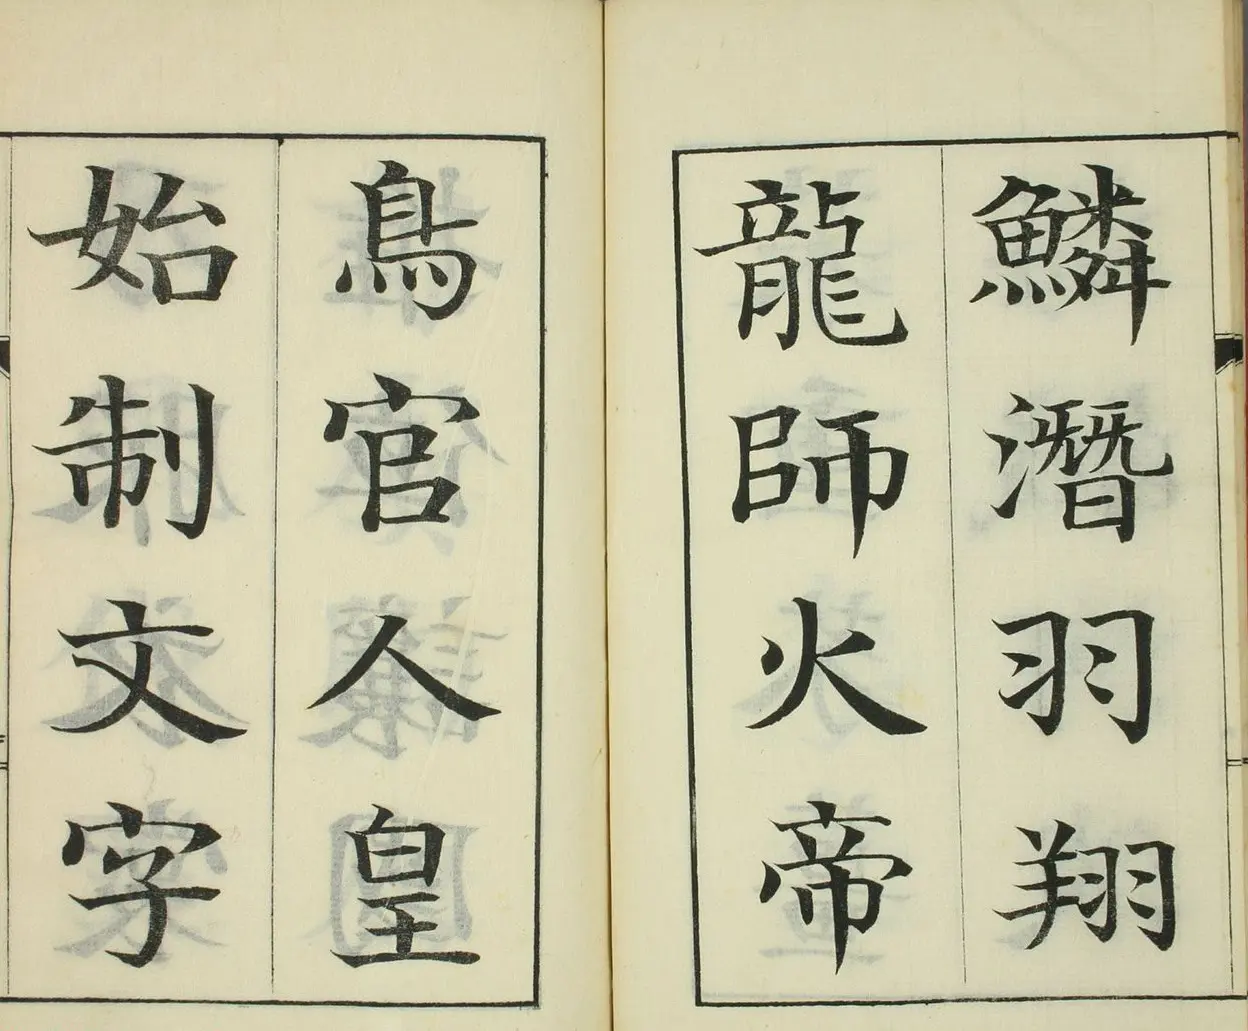 鱗潛羽翔
龍師火帝
鳥官人皇
始制文字